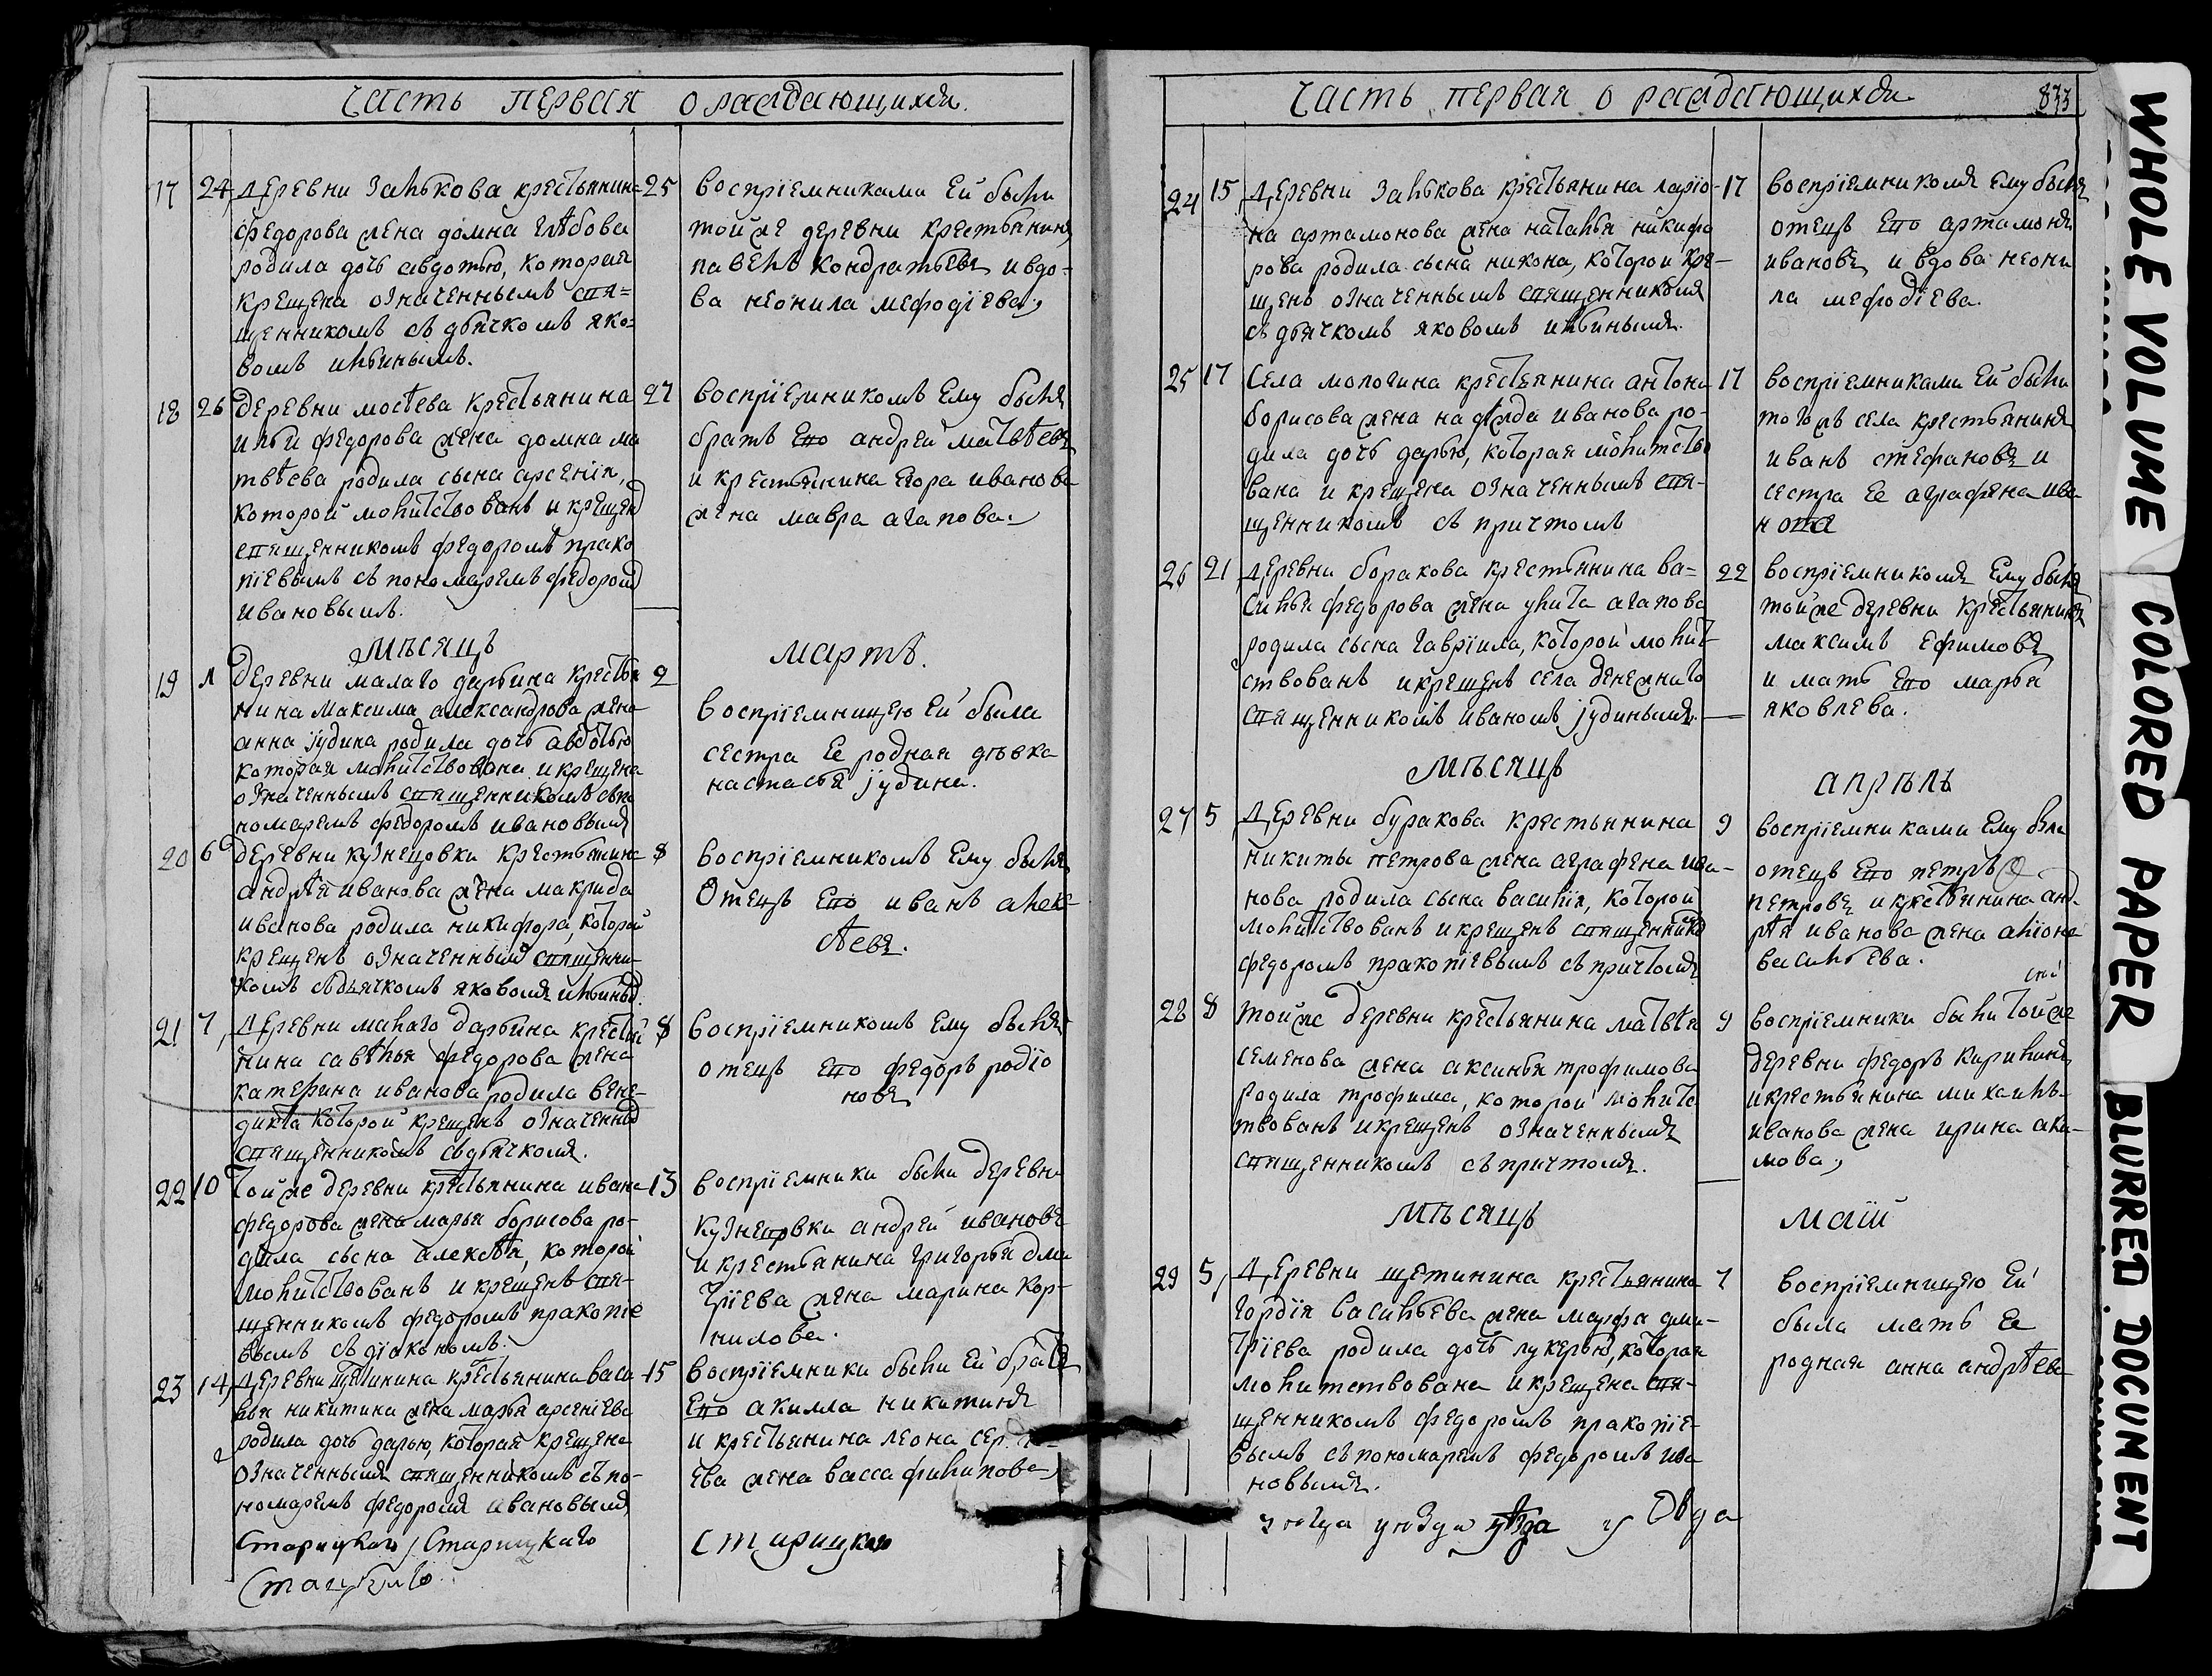 Часть первая о раждающихся.
17 24 Деревни Залькова крестьянина
федорова жена домна глѣбова
родила дочь авдотью, которая
крещена означеннымъ свя=
щенникомъ съ дьячкомъ яко=
вомъ ильинымъ.
25 воспріемниками ей были
тойже деревни крестьянинъ
павелъ кондратьевъ и вдо-
ва неонила мефодіева,
18 26 деревни мостева крестьянина
ильи федорова жена домна ма
твѣева родила сына арсенія,
которой молитствованъ и крещенъ
священникомъ федоромъ прако
піевымъ съ пономаремъ федоромъ
ивановымъ.
27 воспріемникомъ ему былъ
братъ его андрей матвѣевъ
и крестьянина егора иванова
жена мавра агапова.
Мѣсяцъ мартъ.
19 1 деревни малаго дарьина крестья
нина максима александрова жена
анна іудина родила дочь авдотью
которая молитствована и крещена
означеннымъ священникомъ съ по
номаремъ федоромъ ивановымъ
2 воспріемницею ей была
сестра ее родная дѣвка
настасья іудина.
20 6 деревни кузнецовки крестьянина
андрѣя иванова жена макрида
иванова родила никифора, которой
крещенъ означеннымъ священни-
комъ съ дьячкомъ яковомъ ильинымъ.
8 воспріемникомъ ему былъ
отецъ его иванъ алек-
сѣевъ.
21 7 Деревни малаго дарьина крестья
нина савѣлья федорова жена
катерина иванова родила вене-
дикта которой крещенъ означеннымъ
священникомъ съ дьячкомъ.
8 воспріемникомъ ему былъ
отецъ его федоръ родіо
новъ
22 10 тойже деревни крестьянина ивана
федорова жена марья борисова ро-
дила сына алексѣя, которой
молитствованъ и крещенъ свя-
щенникомъ федоромъ пракопіе
вымъ съ діакономъ.
13 воспріемники были деревни
кузнецовки андрей ивановъ
и крестьянина григорья дми
тріева жена марина кор-
нилова.
23 14 Деревни щетинина крестьянина васи
лья никитина жена марья арсеніева
родила дочь дарью, которая крещена
означеннымъ священникомъ съ по-
номаремъ федоромъ ивановымъ
15 воспріемники были ей братъ
его акилла никитинъ
и крестьянина леона
ева жена васса филипова
Старицкаго Старицкаго
Старицкаго
Часть первая о раждающихся 833
24 15 Деревни Залькова крестьянина ларіо-
на артамонова жена наталья никифо
рова родила сына никона, которой кре-
щенъ означеннымъ священникомъ
съ дьячкомъ яковомъ ильинымъ.
17 воспріемникомъ ему былъ
отецъ его артамонъ
ивановъ и вдова неони
ла мефодіева.
25 17 Села молотина крестьянина антона
борисова жена надежда иванова ро-
дила дочь дарью, которая молитство
вана и крещена означеннымъ свя-
щенникомъ съ причтомъ
17 воспріемниками ей были
тогожъ села крестьянинъ
иванъ стефановъ и
сестра ее аграфена ива
нова
26 21 Деревни боракова крестьянина ва=
силья федорова жена улита агапова
родила сына гавріила, которой молит-
ствованъ и крещенъ села денежнаго
священникомъ иваномъ іудинымъ.
22 воспріемникомъ ему былъ
тойже деревни крестьянинъ
максимъ ефимовъ
и мать его марья
яковлева.
Мѣсяцъ апрѣль
27 5 Деревни буракова крестьянина
никиты петрова жена аграфена ива-
нова родила сына василія, которой
молитствованъ и крещенъ священнико
федоромъ пракопіевымъ съ причтомъ
9 воспріемниками ему были
отецъ его петръ
петровъ и крестьянина анд-
рѣя иванова жена
васильева.
28 8 тойже деревни крестьянина матвѣя
семенова жена аксинья трофимова
родила трофима, которой молитс
твованъ и крещенъ означеннымъ
священникомъ съ причтомъ.
9 воспріемники были тойже
деревни федоръ кирилинъ
и крестьянина михаилы
иванова жена ирина аки-
мова,
Мѣсяцъ маій
29 5 Деревни щетинина крестьянина
гордія васильева жена марфа дми-
тріева родила дочь лукерью, которая
молитствована и крещена свя-
щенникомъ федоромъ пракопіе-
вымъ съ пономаремъ федоромъ ива
новымъ.
7 воспріемницею ей
была мать ее
родная анна андрѣева
WHOLE VOLUME
COLORED PAPER
BLURRED DOCUMENT